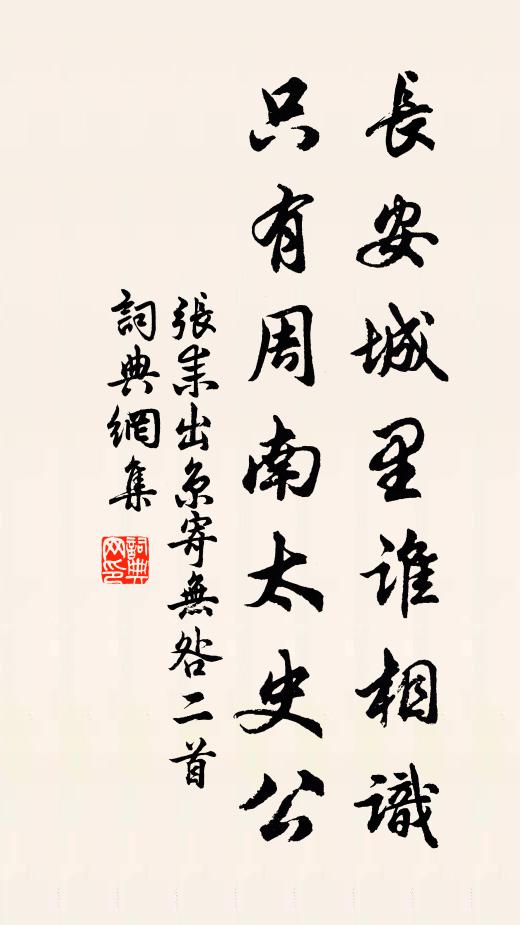 長安城里誰相識
只有周南太史公
張耒出京寄無咎二首
詞典網集
詞典網印